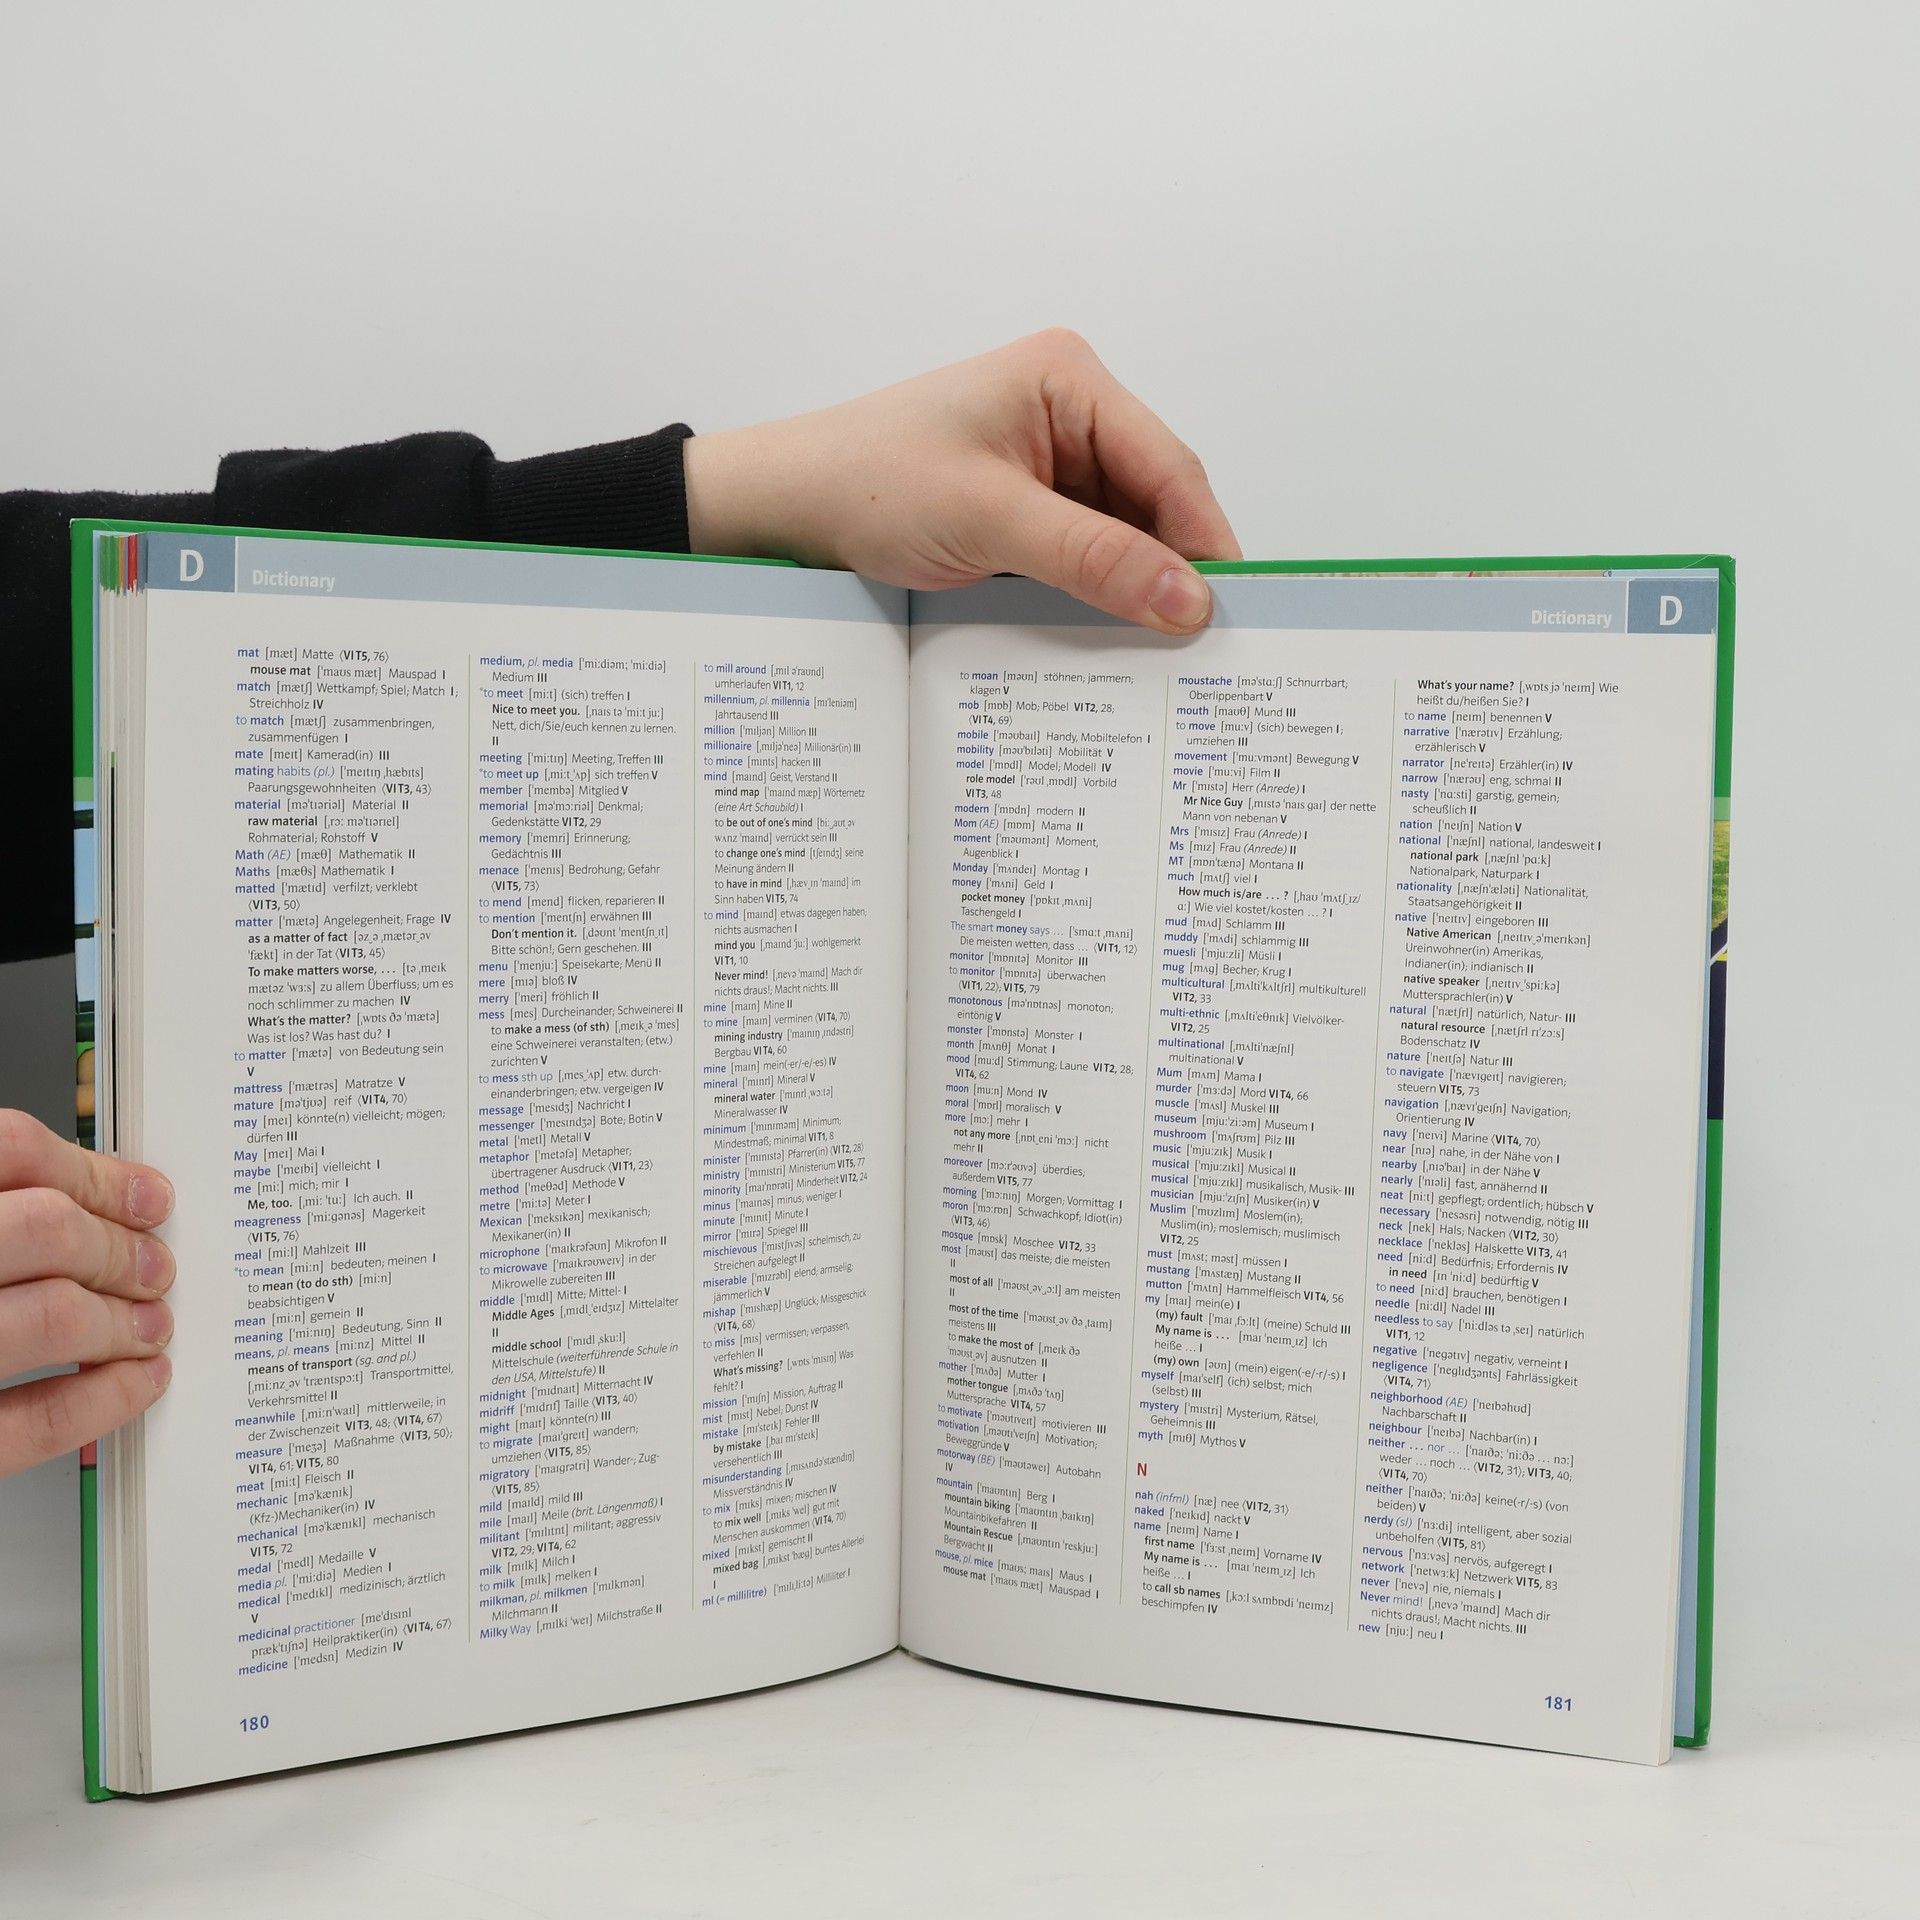 D
Dictionary
mat [mæt] Matte ⟨VIT5, 76⟩
mouse mat [ˈmaʊs mæt] Mauspad I
match [mætʃ] Wettkampf; Spiel; Match I;
Streichholz IV
to match [mætʃ] zusammenbringen,
zusammenfügen I
mate [meɪt] Kamerad(in) III
mating habits (pl.) [ˈmeɪtɪŋ ˌhæbɪts]
Paarungsgewohnheiten ⟨VIT3, 43⟩
material [məˈtɪəriəl] Material II
raw material [ˌrɔː məˈtɪəriəl]
Rohmaterial; Rohstoff V
Math (AE) [mæθ] Mathematik II
Maths [mæθs] Mathematik I
matted [ˈmætɪd] verfilzt; verklebt
⟨VIT3, 50⟩
matter [ˈmætə] Angelegenheit; Frage IV
as a matter of fact [əz‿ə ˌmætər‿əv
ˈfækt] in der Tat ⟨VIT3, 45⟩
To make matters worse, … [tə ˌmeɪk
mætəz ˈwɜːs] zu allem Überfluss; um es
noch schlimmer zu machen IV
What's the matter? [ˌwɒts ðə ˈmætə]
Was ist los? Was hast du? I
to matter [ˈmætə] von Bedeutung sein
V
mattress [ˈmætrəs] Matratze V
mature [məˈtjʊə] reif ⟨VIT4, 70⟩
may [meɪ] könnte(n) vielleicht; mögen;
dürfen III
May [meɪ] Mai I
maybe [ˈmeɪbi] vielleicht I
me [miː] mich; mir I
Me, too. [ˌmiː ˈtuː] Ich auch. II
meagreness [ˈmiːgənəs] Magerkeit
⟨VIT5, 76⟩
meal [miːl] Mahlzeit III
*to mean [miːn] bedeuten; meinen I
to mean (to do sth) [miːn]
beabsichtigen V
mean [miːn] gemein II
meaning [ˈmiːnɪŋ] Bedeutung, Sinn II
means, pl. means [miːnz] Mittel II
means of transport (sg. and pl.)
[ˌmiːnz‿əv ˈtrænspɔːt] Transportmittel,
Verkehrsmittel II
meanwhile [ˌmiːnˈwaɪl] mittlerweile; in
der Zwischenzeit VIT3, 48; ⟨VIT4, 67⟩
measure [ˈmeʒə] Maßnahme ⟨VIT3, 50⟩;
VIT4, 61; VIT5, 80
meat [miːt] Fleisch II
mechanic [məˈkænɪk]
(Kfz-)Mechaniker(in) IV
mechanical [məˈkænɪkl] mechanisch
VIT5, 72
medal [ˈmedl] Medaille V
media pl. [ˈmiːdiə] Medien I
medical [ˈmedɪkl] medizinisch; ärztlich
V
medicinal practitioner [meˈdɪsɪnl
prækˈtɪʃnə] Heilpraktiker(in) ⟨VIT4, 67⟩
medicine [ˈmedsn] Medizin IV
medium, pl. media [ˈmiːdiəm; ˈmiːdiə]
Medium III
*to meet [miːt] (sich) treffen I
Nice to meet you. [ˌnaɪs tə ˈmiːt juː]
Nett, dich/Sie/euch kennen zu lernen.
II
meeting [ˈmiːtɪŋ] Meeting, Treffen III
*to meet up [ˌmiːt‿ˈʌp] sich treffen V
member [ˈmembə] Mitglied V
memorial [məˈmɔːriəl] Denkmal;
Gedenkstätte VIT2, 29
memory [ˈmemri] Erinnerung;
Gedächtnis III
menace [ˈmenɪs] Bedrohung; Gefahr
⟨VIT5, 73⟩
to mend [mend] flicken, reparieren II
to mention [ˈmentʃn] erwähnen III
Don't mention it. [ˌdəʊnt ˈmentʃn‿ɪt]
Bitte schön!; Gern geschehen. III
menu [ˈmenjuː] Speisekarte; Menü II
mere [mɪə] bloß IV
merry [ˈmeri] fröhlich II
mess [mes] Durcheinander; Schweinerei II
to make a mess (of sth) [ˌmeɪk‿ə ˈmes]
eine Schweinerei veranstalten; (etw.)
zurichten V
to mess sth up [ˌmes‿ˈʌp] etw. durch-
einanderbringen; etw. vergeigen IV
message [ˈmesɪdʒ] Nachricht I
messenger [ˈmesɪndʒə] Bote; Botin V
metal [ˈmetl] Metall V
metaphor [ˈmetəfə] Metapher;
übertragener Ausdruck ⟨VIT1, 23⟩
method [ˈmeθəd] Methode V
metre [ˈmiːtə] Meter I
Mexican [ˈmeksɪkən] mexikanisch;
Mexikaner(in) II
microphone [ˈmaɪkrəfəʊn] Mikrofon II
to microwave [ˈmaɪkrəʊweɪv] in der
Mikrowelle zubereiten III
middle [ˈmɪdl] Mitte; Mittel- I
Middle Ages [ˌmɪdl‿ˈeɪdʒɪz] Mittelalter
II
middle school [ˈmɪdl ˌskuːl]
Mittelschule (weiterführende Schule in
den USA, Mittelstufe) II
midnight [ˈmɪdnaɪt] Mitternacht IV
midriff [ˈmɪdrɪf] Taille ⟨VIT3, 40⟩
might [maɪt] könnte(n) III
to migrate [maɪˈgreɪt] wandern;
umziehen ⟨VIT5, 85⟩
migratory [ˈmaɪgrətri] Wander-; Zug-
⟨VIT5, 85⟩
mild [maɪld] mild III
mile [maɪl] Meile (brit. Längenmaß) I
militant [ˈmɪlɪtnt] militant; aggressiv
VIT2, 29; VIT4, 62
milk [mɪlk] Milch I
to milk [mɪlk] melken I
milkman, pl. milkmen [ˈmɪlkmən]
Milchmann II
Milky Way [ˌmɪlki ˈweɪ] Milchstraße II
to mill around [ˌmɪl əˈraʊnd]
umherlaufen VIT1, 12
millennium, pl. millennia [mɪˈleniəm]
Jahrtausend III
million [ˈmɪljən] Million III
millionaire [ˌmɪljəˈneə] Millionär(in) III
to mince [mɪnts] hacken III
mind [maɪnd] Geist, Verstand II
mind map [ˈmaɪnd mæp] Wörternetz
(eine Art Schaubild) I
to be out of one's mind [biː‿ˌaʊt‿əv
wʌnz ˈmaɪnd] verrückt sein III
to change one's mind [tʃeɪndʒ] seine
Meinung ändern II
to have in mind [ˌhæv‿ɪn ˈmaɪnd] im
Sinn haben VIT5, 74
to mind [maɪnd] etwas dagegen haben;
nichts ausmachen I
mind you [ˌmaɪnd ˈjuː] wohlgemerkt
VIT1, 10
Never mind! [ˌnevə ˈmaɪnd] Mach dir
nichts draus!; Macht nichts. III
mine [maɪn] Mine II
to mine [maɪn] verminen ⟨VIT4, 70⟩
mining industry [ˈmaɪnɪŋ ˌɪndəstri]
Bergbau VIT4, 60
mine [maɪn] mein(-er/-e/-es) IV
mineral [ˈmɪnrl] Mineral V
mineral water [ˈmɪnrl ˌwɔːtə]
Mineralwasser IV
minimum [ˈmɪnɪməm] Minimum;
Mindestmaß; minimal VIT1, 8
minister [ˈmɪnɪstə] Pfarrer(in) ⟨VIT2, 28⟩
ministry [ˈmɪnɪstri] Ministerium VIT5, 77
minority [maɪˈnɒrəti] Minderheit VIT2, 24
minus [ˈmaɪnəs] minus; weniger I
minute [ˈmɪnɪt] Minute I
mirror [ˈmɪrə] Spiegel III
mischievous [ˈmɪstʃɪvəs] schelmisch, zu
Streichen aufgelegt II
miserable [ˈmɪzrəbl] elend; armselig;
jämmerlich V
mishap [ˈmɪshæp] Unglück; Missgeschick
⟨VIT4, 68⟩
to miss [mɪs] vermissen; verpassen,
verfehlen II
What's missing? [ˌwɒts ˈmɪsɪŋ] Was
fehlt? I
mission [ˈmɪʃn] Mission, Auftrag II
mist [mɪst] Nebel; Dunst IV
mistake [mɪˈsteɪk] Fehler III
by mistake [ˌbaɪ mɪˈsteɪk]
versehentlich III
misunderstanding [ˌmɪsʌndəˈstændɪŋ]
Missverständnis IV
to mix [mɪks] mixen; mischen IV
to mix well [ˌmɪks ˈwel] gut mit
Menschen auskommen ⟨VIT4, 70⟩
mixed [mɪkst] gemischt II
mixed bag [ˌmɪkst ˈbæg] buntes Allerlei
I
ml (= millilitre) [ˈmɪlɪˌliːtə] Milliliter I
180
Dictionary
D
to moan [məʊn] stöhnen; jammern;
klagen V
mob [mɒb] Mob; Pöbel VIT2, 28;
⟨VIT4, 69⟩
mobile [ˈməʊbaɪl] Handy, Mobiltelefon I
mobility [məʊˈbɪləti] Mobilität V
model [ˈmɒdl] Model; Modell IV
role model [ˈrəʊl ˌmɒdl] Vorbild
VIT3, 48
modern [ˈmɒdn] modern II
Mom (AE) [mɒm] Mama II
moment [ˈməʊmənt] Moment,
Augenblick I
Monday [ˈmʌndeɪ] Montag I
money [ˈmʌni] Geld I
pocket money [ˈpɒkɪt ˌmʌni]
Taschengeld I
The smart money says … [ˈsmɑːt ˌmʌni]
Die meisten wetten, dass … ⟨VIT1, 12⟩
monitor [ˈmɒnɪtə] Monitor III
to monitor [ˈmɒnɪtə] überwachen
⟨VIT1, 22⟩; VIT5, 79
monotonous [məˈnɒtnəs] monoton;
eintönig V
monster [ˈmɒnstə] Monster I
month [mʌnθ] Monat I
mood [muːd] Stimmung; Laune VIT2, 28;
VIT4, 62
moon [muːn] Mond IV
moral [ˈmɒrl] moralisch V
more [mɔː] mehr I
not any more [ˌnɒt‿eni ˈmɔː] nicht
mehr II
moreover [mɔːrˈəʊvə] überdies;
außerdem VIT5, 77
morning [ˈmɔːnɪŋ] Morgen; Vormittag I
moron [ˈmɔːrɒn] Schwachkopf; Idiot(in)
⟨VIT3, 46⟩
mosque [mɒsk] Moschee VIT2, 33
most [məʊst] das meiste; die meisten
II
most of all [ˈməʊst‿əv‿ɔːl] am meisten
II
most of the time [ˈməʊst‿əv ðə ˌtaɪm]
meistens III
to make the most of [ˌmeɪk ðə
ˈməʊst‿əv] ausnutzen II
mother [ˈmʌðə] Mutter I
mother tongue [ˌmʌðə ˈtʌŋ]
Muttersprache VIT4, 57
to motivate [ˈməʊtɪveɪt] motivieren III
motivation [ˌməʊtɪˈveɪʃn] Motivation;
Beweggründe V
motorway (BE) [ˈməʊtəweɪ] Autobahn
IV
mountain [ˈmaʊntɪn] Berg I
mountain biking [ˈmaʊntɪn ˌbaɪkɪŋ]
Mountainbikefahren II
Mountain Rescue [ˌmaʊntɪn ˈreskjuː]
Bergwacht II
mouse, pl. mice [maʊs; maɪs] Maus I
mouse mat [ˈmaʊs mæt] Mauspad I
moustache [məˈstɑːʃ] Schnurrbart;
Oberlippenbart V
mouth [maʊθ] Mund III
to move [muːv] (sich) bewegen I;
umziehen III
movement [ˈmuːvmənt] Bewegung V
movie [ˈmuːvi] Film II
Mr [ˈmɪstə] Herr (Anrede) I
Mr Nice Guy [ˌmɪstə ˈnaɪs gaɪ] der nette
Mann von nebenan V
Mrs [ˈmɪsɪz] Frau (Anrede) I
Ms [mɪz] Frau (Anrede) II
MT [mɒnˈtænə] Montana II
much [mʌtʃ] viel I
How much is/are … ? [ˌhaʊ ˈmʌtʃ‿ɪz/
ɑː] Wie viel kostet/kosten … ? I
mud [mʌd] Schlamm III
muddy [ˈmʌdi] schlammig III
muesli [ˈmjuːzli] Müsli I
mug [mʌg] Becher; Krug I
multicultural [ˌmʌltiˈkʌltʃrl] multikulturell
VIT2, 33
multi-ethnic [ˌmʌltiˈeθnɪk] Vielvölker-
VIT2, 25
multinational [ˌmʌltiˈnæʃnl]
multinational V
Mum [mʌm] Mama I
murder [ˈmɜːdə] Mord VIT4, 66
muscle [ˈmʌsl] Muskel III
museum [mjuːˈziːəm] Museum I
mushroom [ˈmʌʃrʊm] Pilz III
music [ˈmjuːzɪk] Musik I
musical [ˈmjuːzɪkl] Musical II
musical [ˈmjuːzɪkl] musikalisch, Musik- III
musician [mjuːˈzɪʃn] Musiker(in) V
Muslim [ˈmʊzlɪm] Moslem(in);
Muslim(in); moslemisch; muslimisch
VIT2, 25
must [mʌst; məst] müssen I
mustang [ˈmʌstæŋ] Mustang II
mutton [ˈmʌtn] Hammelfleisch VIT4, 56
my [maɪ] mein(e) I
(my) fault [ˈmaɪ ˌfɔːlt] (meine) Schuld III
My name is … [maɪ ˈneɪm‿ɪz] Ich
heiße … I
(my) own [əʊn] (mein) eigen(-e/-r/-s) I
myself [maɪˈself] (ich) selbst; mich
(selbst) III
mystery [ˈmɪstri] Mysterium, Rätsel,
Geheimnis III
myth [mɪθ] Mythos V
N
nah (infml) [næ] nee ⟨VIT2, 31⟩
naked [ˈneɪkɪd] nackt V
name [neɪm] Name I
first name [ˈfɜːst ˌneɪm] Vorname IV
My name is … [maɪ ˈneɪm‿ɪz] Ich
heiße … I
to call sb names [ˌkɔːl sʌmbɒdi ˈneɪmz]
beschimpfen IV
What's your name? [ˌwɒts jə ˈneɪm] Wie
heißt du/heißen Sie? I
to name [neɪm] benennen V
narrative [ˈnærətɪv] Erzählung;
erzählerisch V
narrator [nəˈreɪtə] Erzähler(in) IV
narrow [ˈnærəʊ] eng, schmal II
nasty [ˈnɑːsti] garstig, gemein;
scheußlich II
nation [ˈneɪʃn] Nation V
national [ˈnæʃnl] national, landesweit I
national park [ˌnæʃnl ˈpɑːk]
Nationalpark, Naturpark I
nationality [ˌnæʃnˈæləti] Nationalität,
Staatsangehörigkeit II
native [ˈneɪtɪv] eingeboren III
Native American [ˌneɪtɪv‿əˈmerɪkən]
Ureinwohner(in) Amerikas,
Indianer(in); indianisch II
native speaker [ˌneɪtɪv‿ˈspiːkə]
Muttersprachler(in) V
natural [ˈnætʃrl] natürlich, Natur- III
natural resource [ˌnætʃrl rɪˈzɔːs]
Bodenschatz IV
nature [ˈneɪtʃə] Natur III
to navigate [ˈnævɪgeɪt] navigieren;
steuern VIT5, 73
navigation [ˌnævɪˈgeɪʃn] Navigation;
Orientierung IV
navy [ˈneɪvi] Marine ⟨VIT4, 70⟩
near [nɪə] nahe, in der Nähe von I
nearby [ˌnɪəˈbaɪ] in der Nähe V
nearly [ˈnɪəli] fast, annähernd II
neat [niːt] gepflegt; ordentlich; hübsch V
necessary [ˈnesəsri] notwendig, nötig III
neck [nek] Hals; Nacken ⟨VIT2, 30⟩
necklace [ˈnekləs] Halskette VIT3, 41
need [niːd] Bedürfnis; Erfordernis IV
in need [ɪn ˈniːd] bedürftig V
to need [niːd] brauchen, benötigen I
needle [niːdl] Nadel III
needless to say [ˈniːdləs tə ˌseɪ] natürlich
VIT1, 12
negative [ˈnegətɪv] negativ, verneint I
negligence [ˈneglɪdʒənts] Fahrlässigkeit
⟨VIT4, 71⟩
neighborhood (AE) [ˈneɪbəhʊd]
Nachbarschaft II
neighbour [ˈneɪbə] Nachbar(in) I
neither … nor … [ˈnaɪðə; ˈniːðə … nɔː]
weder … noch … ⟨VIT2, 31⟩; VIT3, 40;
⟨VIT4, 70⟩
neither [ˈnaɪðə; ˈniːðə] keine(-r/-s) (von
beiden) V
nerdy (sl) [ˈnɜːdi] intelligent, aber sozial
unbeholfen ⟨VIT5, 81⟩
nervous [ˈnɜːvəs] nervös, aufgeregt I
network [ˈnetwɜːk] Netzwerk VIT5, 83
never [ˈnevə] nie, niemals I
Never mind! [ˌnevə ˈmaɪnd] Mach dir
nichts draus!; Macht nichts. III
new [njuː] neu I
181